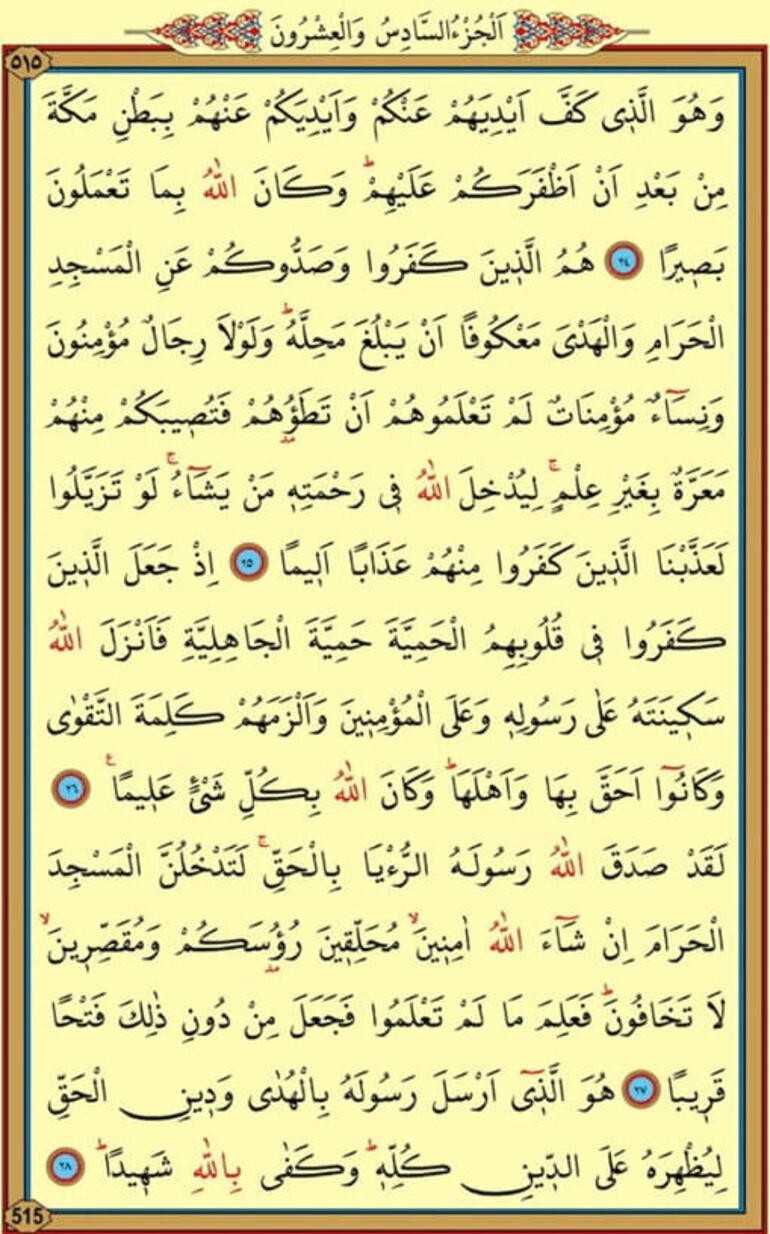 اَلْجُزْءُ السَّادِسُ وَالْعِشْرُونَ
٥١٥
وَهُوَ الَّذ۪ى كَفَّ اَيْدِيَهُمْ عَنْكُمْ وَاَيْدِيَكُمْ عَنْهُمْ بِبَطْنِ مَكَّةَ
مِنْ بَعْدِ اَنْ اَظْفَرَكُمْ عَلَيْهِمْۜ وَكَانَ اللّٰهُ بِمَا تَعْمَلُونَ
بَص۪يرًا ٢٤ هُمُ الَّذ۪ينَ كَفَرُوا وَصَدُّوكُمْ عَنِ الْمَسْجِدِ
الْحَرَامِ وَالْهَدْىَ مَعْكُوفًا اَنْ يَبْلُغَ مَحِلَّهُۜ وَلَوْلَا رِجَالٌ مُؤْمِنُونَ
وَنِسَٓاءٌ مُؤْمِنَاتٌ لَمْ تَعْلَمُوهُمْ اَنْ تَطَؤُ۫هُمْ فَتُص۪يبَكُمْ مِنْهُمْ
مَعَرَّةٌ بِغَيْرِ عِلْمٍۚ لِيُدْخِلَ اللّٰهُ ف۪ى رَحْمَتِه۪ مَنْ يَشَٓاءُۚ لَوْ تَزَيَّلُوا
لَعَذَّبْنَا الَّذ۪ينَ كَفَرُوا مِنْهُمْ عَذَابًا اَل۪يمًا ٢٥ اِذْ جَعَلَ الَّذ۪ينَ
كَفَرُوا ف۪ى قُلُوبِهِمُ الْحَمِيَّةَ حَمِيَّةَ الْجَاهِلِيَّةِ فَاَنْزَلَ اللّٰهُ
سَك۪ينَتَهُ عَلٰى رَسُولِه۪ وَعَلَى الْمُؤْمِن۪ينَ وَاَلْزَمَهُمْ كَلِمَةَ التَّقْوٰى
وَكَانُٓوا اَحَقَّ بِهَا وَاَهْلَهَاۜ وَكَانَ اللّٰهُ بِكُلِّ شَىْءٍ عَل۪يمًا ع ٢٦
لَقَدْ صَدَقَ اللّٰهُ رَسُولَهُ الرُّءْيَا بِالْحَقِّۚ لَتَدْخُلُنَّ الْمَسْجِدَ
الْحَرَامَ اِنْ شَٓاءَ اللّٰهُ اٰمِن۪ينَۙ مُحَلِّق۪ينَ رُؤُ۫سَكُمْ وَمُقَصِّر۪ينَۙ
لَا تَخَافُونَۜ فَعَلِمَ مَا لَمْ تَعْلَمُوا فَجَعَلَ مِنْ دُونِ ذٰلِكَ فَتْحًا
قَر۪يبًا ٢٧ هُوَ الَّذ۪ٓى اَرْسَلَ رَسُولَهُ بِالْهُدٰى وَد۪ينِ الْحَقِّ
لِيُظْهِرَهُ عَلَى الدّ۪ينِ كُلِّه۪ۜ وَكَفٰى بِاللّٰهِ شَه۪يدًاۜ ٢٨
515